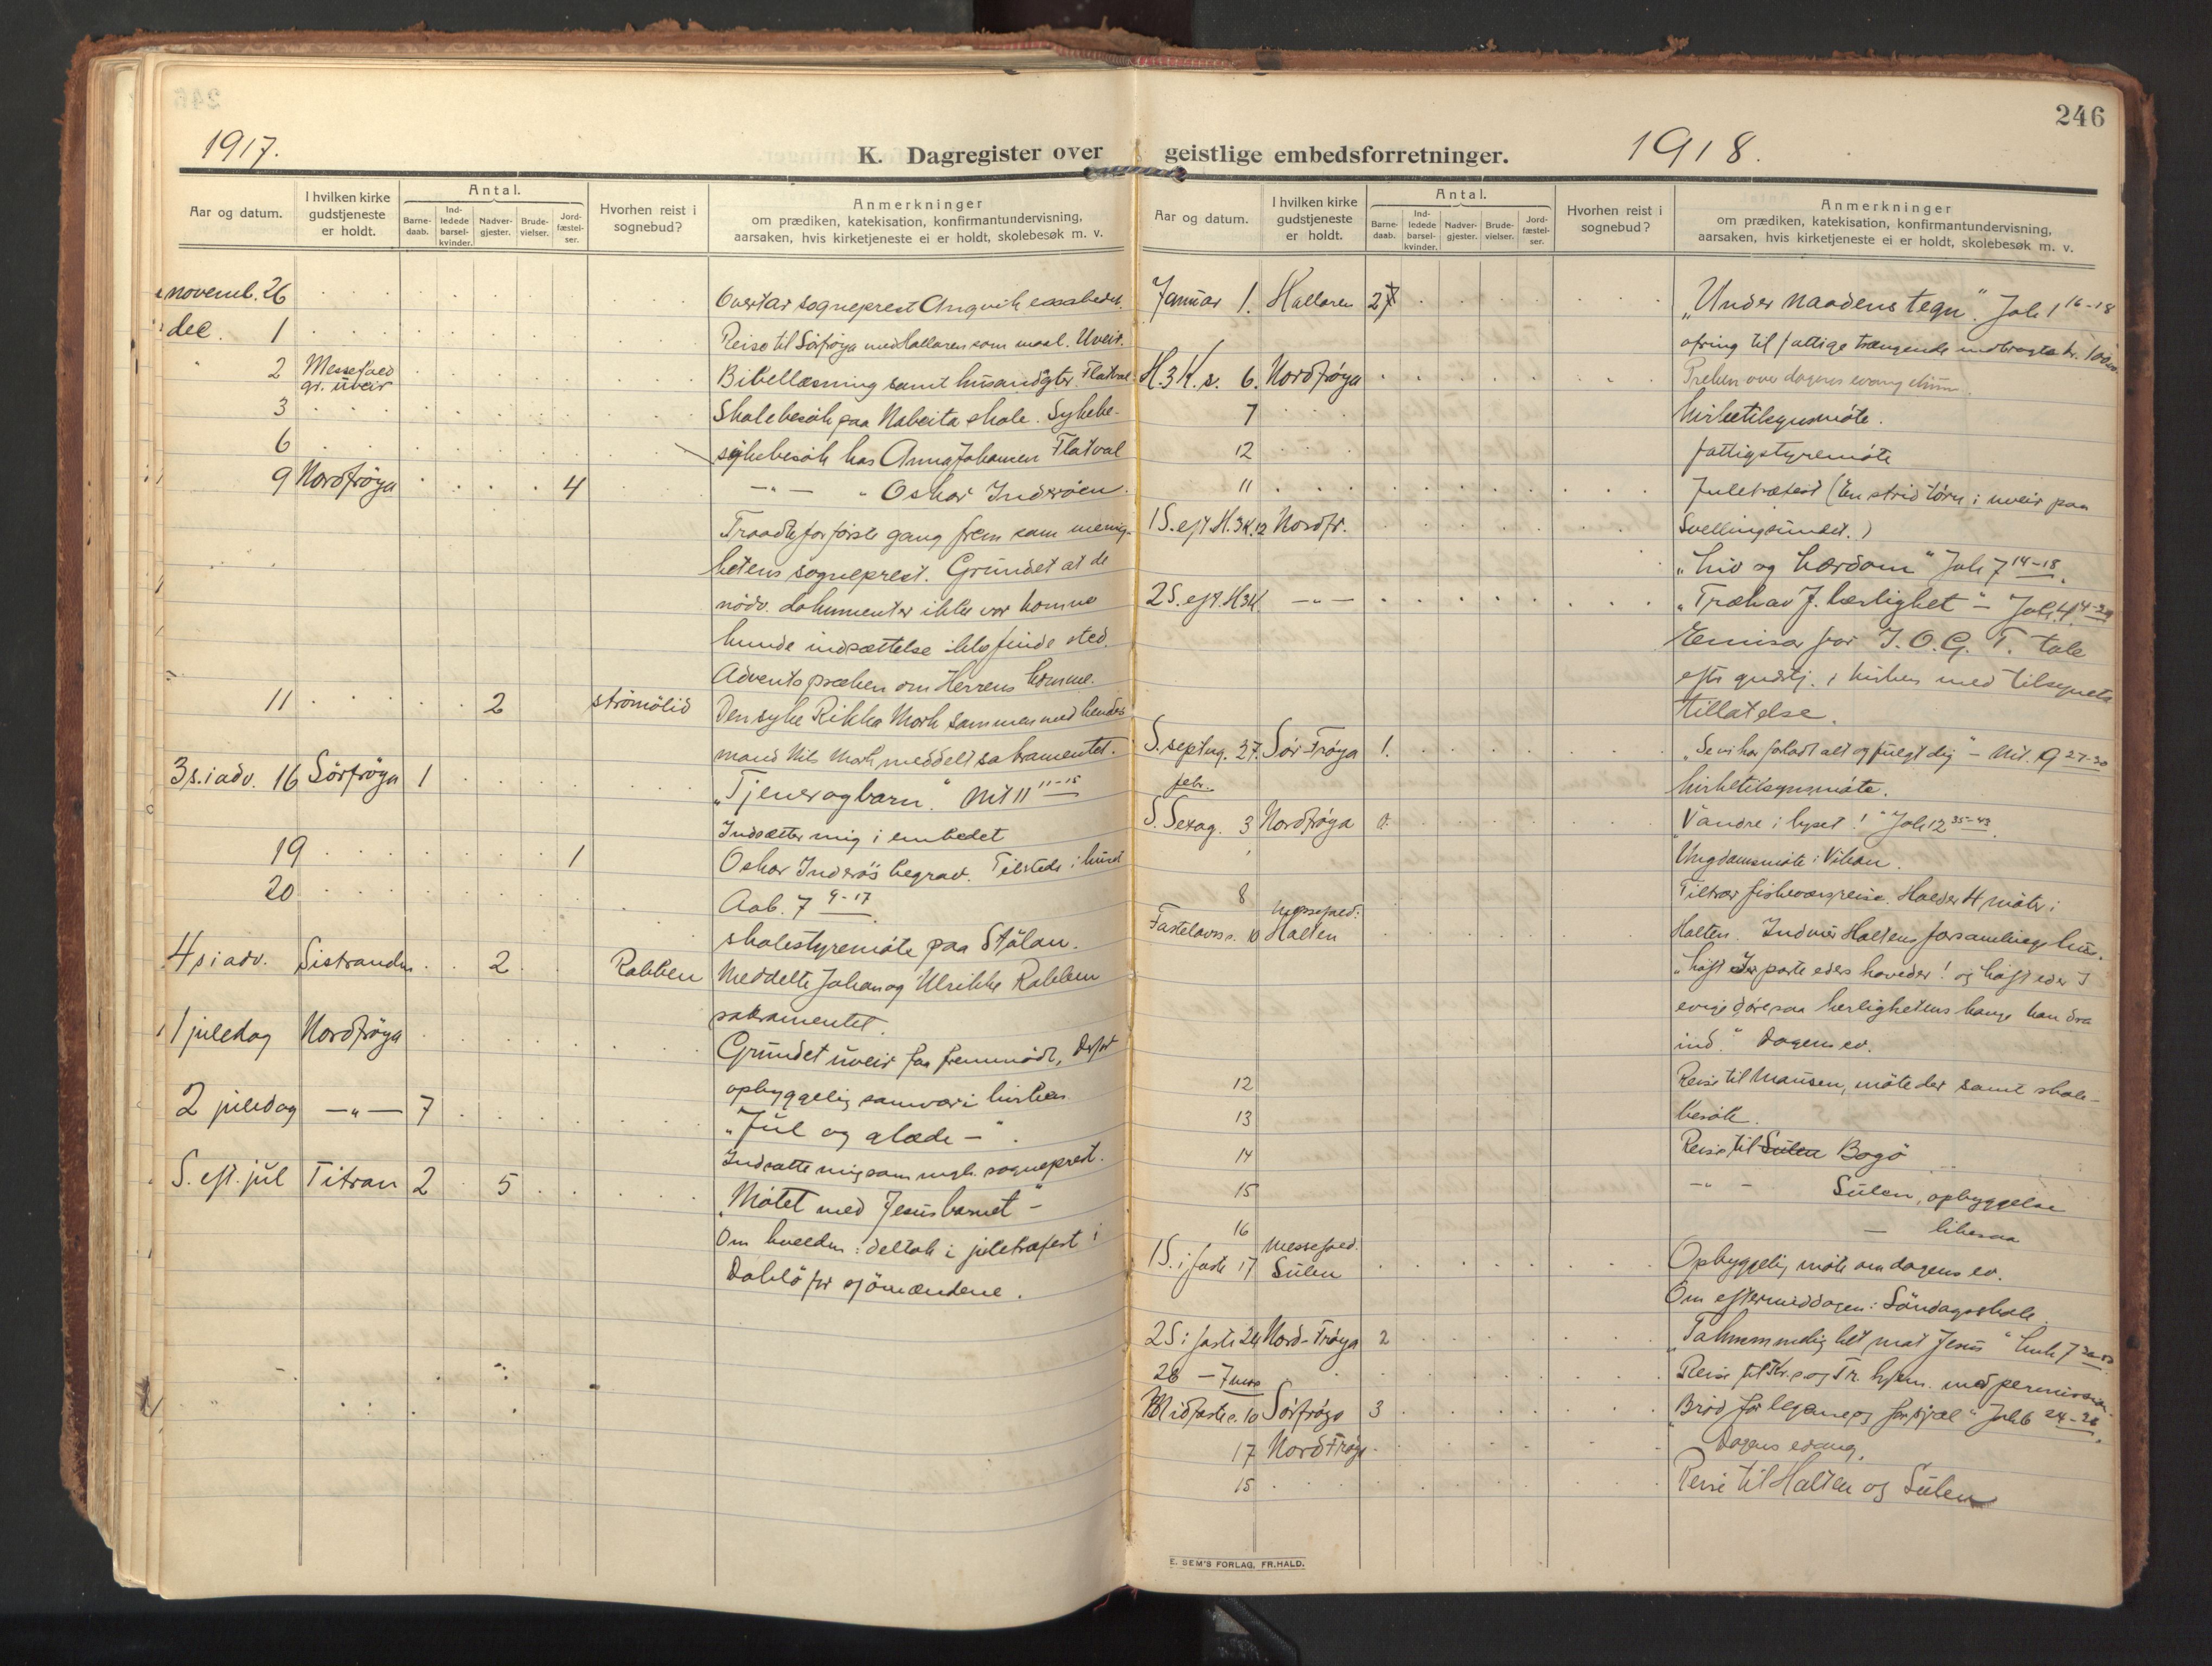 246
1917.
K. Dagregister over
Aar og datum.
I hvilken kirke gudstjeneste er holdt.
Antal.
Barne-daab.
Ind-ledede barsel-kvinder.
Nadver-gjester.
Brude-vielser.
Jord-fæstel-ser.
Hvorhen reist i sognebud?
Anmerkninger
om prædiken, katekisation, konfirmantundervisning,
aarsaken, hvis kirketjeneste ei er holdt, skolebesøk m. v.
novemb. 26 Overtar sogneprest Angvik embedet.
dec. 1 Reise til Sörfröya med Hallaren som maal. Uveir.
2 Messefald Bibellæsning samt husandagter Flatval
gr. uveir
3 Skolebesök paa Nabeita skole. Sykebe-
6 sykebesök hos Anna Johansen Flatval
9 Nordfröya 4 —"— " Oskar Inderöen.
Traadte for förste gang frem som menig-
hetens sogneprest. Grundet at de
nödv. dokumenter ikke var komne
kunde indsættelse ikke finde sted.
Adventspræken om Herrens komme.
11 2 strömölid Den syke Rikka Mork sammen med hendes
mand Nils Mork meddelt sakramentet.
3 s. i adv. 16 Sörfröya 1 „Tjener og barn." Mt 11 11-15
Indsætter mig i embedet
19 1 Oskar Inderös begrav. Tilstede i huset
20 Aab. 7 9-17
skolestyremöte paa Stölan.
4 s i adv. Sistranda 2 Rabben Meddelte Johan og Ulrikke Rabben
sakramentet.
1 juledag Nordfröya Grundet uveir faa fremmödt, derfor
opbyggelig samvær i kirken
2 juledag —"— 7 „Jul og glæde —".
Indsatte mig som sogneprest.
S. eft. jul Titran 2 5 „Mötet med Jesusbarnet —"
Om kvelden: deltok i juletræfest i
for sjömændene.
246
geistlige embedsforretninger.
1918.
Aar og datum.
I hvilken kirke gudstjeneste er holdt.
Antal.
Barne-daab.
Ind-ledede barsel-kvinder.
Nadver-gjester.
Brude-vielser.
Jord-fæstel-ser.
Hvorhen reist i sognebud?
Anmerkninger
om prædiken, katekisation, konfirmantundervisning,
aarsaken, hvis kirketjeneste ei er holdt, skolebesøk m. v.
Januar 1. Hallaren 2 „Under naadens tegn". Joh 1 16-18
ofring til fattige trængende indbragte kr.
H. 3 K. s. 6. Nordfröya Preken over dagens evangelium.
7 kirketilsynsmöte.
12 fattigstyremöte
11 Juletræfest (En strid törn i uveir paa
1 S. eft H. 3 K. 12 Nordfr. Svellingsundet.)
„Liv og Lærdom" Joh 7 14-18.
2 S. eft. H 3 K —"— „Træk av J. herlighet" —
Emisær for I. O. G. T. tale
eft gudstj. i kirken med tilsynets
tillatelse.
S. septug. 27. Sör-Fröya 1. „Se vi har forladt alt og fulgt dig" — Mt. 9 27-30
febr. kirketilsynsmöte.
S. Sexag. 3 Nordfröya 0. „Vandre i lyset!" Joh 12 35-43.
Ungdomsmöte i Vikan.
8 Tiltrær fiskeværsreise. Holder 4 möter i
Messefald:
Fastelavns s. 10 Halten Halten. Indvier Haltens forsamlingshus.
„Löft porte eders hoveder! og löft eder I
evige döre saa herlighetens konge kan dra
ind." Dagens ev.
12 Reise til Mausen, möte der samt skole-
13 besök.
14 Reise til Sulen Bogö
15 —"— Sulen, opbyggelse
16 — likesaa
Messefald.
1 S. i faste 17 Sulen Opbyggelig möte om dagens ev.
Om eftermiddagen: Söndagsskole.
2 S i faste 24 Nord-Fröya 2 „Taknemmelighet mot Jesus" Luk 7
28 — 7 mars Reise til Kr. og Tr. hjem. med permission.
Midfaste s. 10 Sörfröya 3 „Bröd for legeme og for sjæl" Joh 6 24-26.
17 Nordfröya Dagens evang.
15 Reise til Halten og Sulen
E. SEM'S FORLAG, FR.HALD.